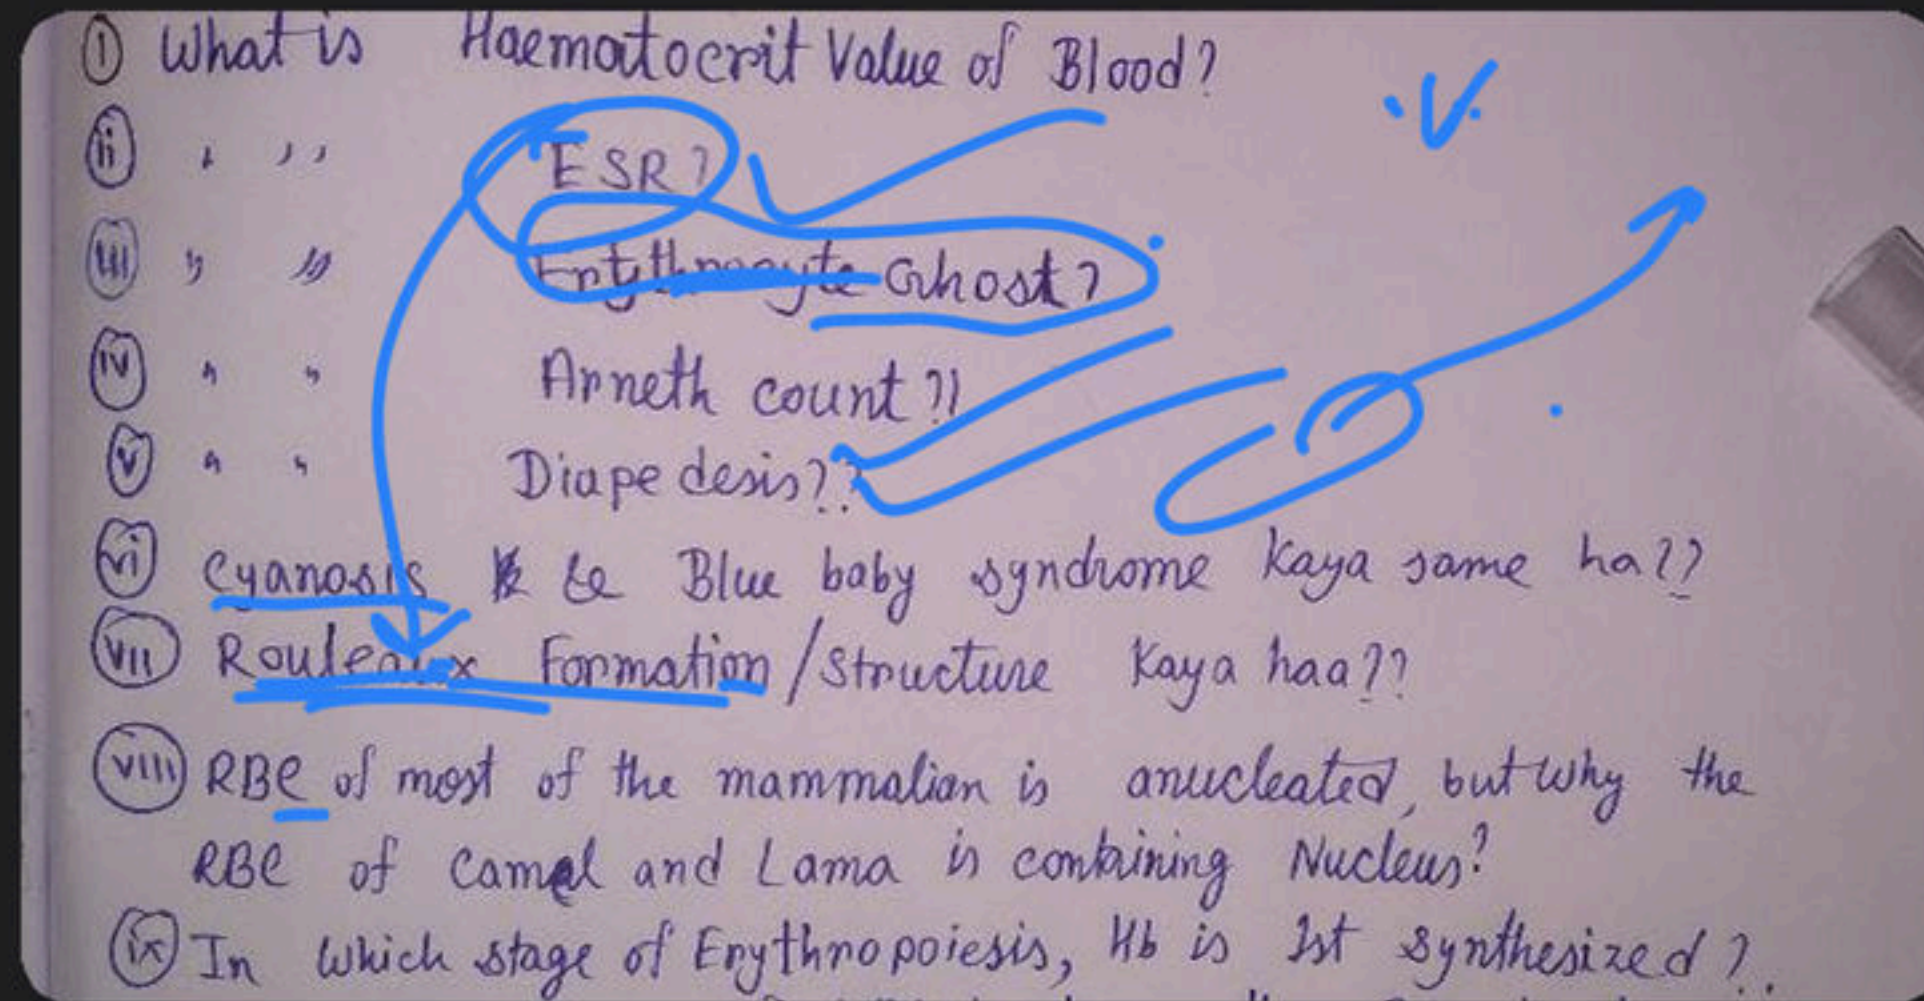 ① What is Haematocrit Value of Blood?
ⅱ " " ESR?
ⅲ " " Erythrocyte Ghost?
ⅳ " " Arneth count??
ⅴ " " Diapedesis??
ⅵ Cyanosis & Blue baby syndrome kaya same ha??
ⅶ Rouleaux Formation/Structure Kaya haa??
ⅷ RBC of most of the mammalian is anucleated, but why the
RBC of Camel and Lama is containing Nucleus?
ⅸ In which stage of Erythropoiesis, Hb is 1st synthesized?